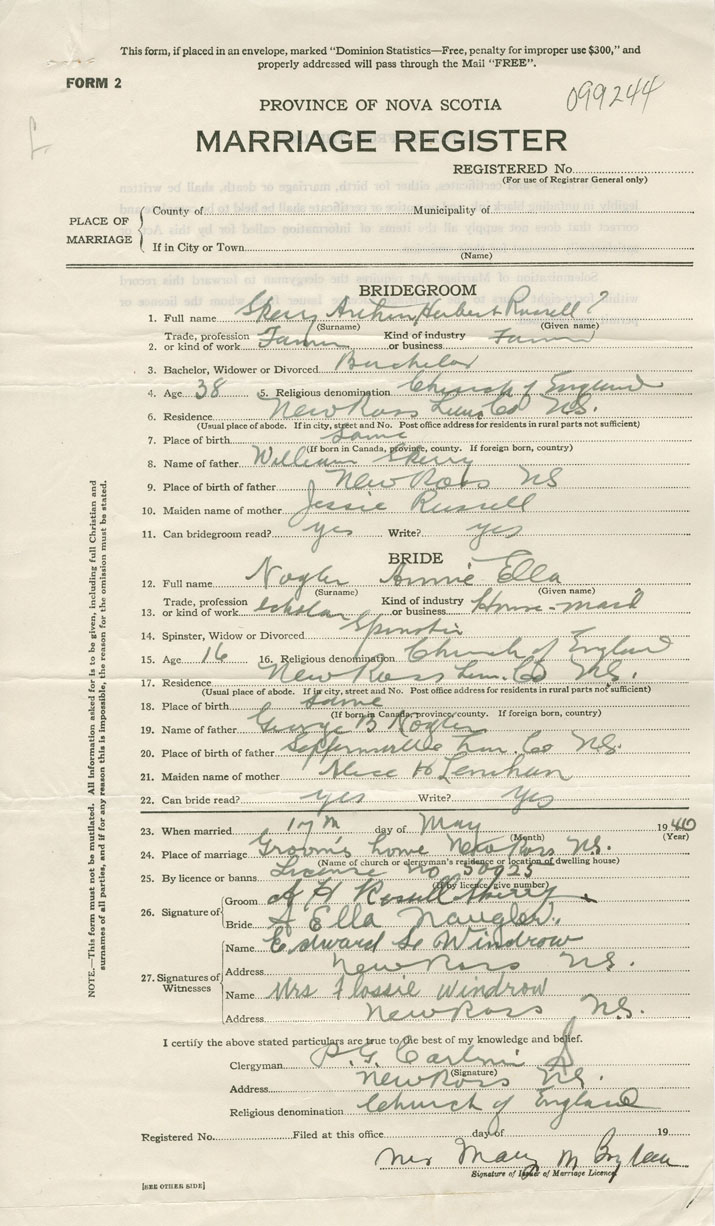 This form, if placed in an envelope, marked "Dominion Statistics—Free, penalty for improper use $300," and
properly addressed will pass through the Mail "FREE".
FORM 2
099244
PROVINCE OF NOVA SCOTIA
MARRIAGE REGISTER
REGISTERED No.
(For use of Registrar General only)
PLACE OF MARRIAGE
County of Municipality of
If in City or Town
(Name)
BRIDEGROOM
1. Full name Skerry Arthur Herbert Russell ?
(Surname) (Given name)
2. Trade, profession or kind of work Farmer Kind of industry or business Farm
3. Bachelor, Widower or Divorced Bachelor
4. Age 38 5. Religious denomination Church of England
6. Residence New Ross Lun. Co N.S.
(Usual place of abode. If in city, street and No. Post office address for residents in rural parts not sufficient)
7. Place of birth Same
(If born in Canada, province, county. If foreign born, country)
8. Name of father William Skerry
9. Place of birth of father New Ross NS
10. Maiden name of mother Jessie Russell
11. Can bridegroom read? yes Write? yes
BRIDE
12. Full name Nogler Annie Ella
(Surname) (Given name)
13. Trade, profession or kind of work scholar Kind of industry or business House-maid
14. Spinster, Widow or Divorced Spinster
15. Age 16 16. Religious denomination Church of England
17. Residence New Ross Lun. Co N.S.
(Usual place of abode. If in city, street and No. Post office address for residents in rural parts not sufficient)
18. Place of birth Same
(If born in Canada, province, county. If foreign born, country)
19. Name of father George B Nogler
20. Place of birth of father Lun. Co N.S.
21. Maiden name of mother Alice H Lenihan
22. Can bride read? yes Write? yes
23. When married 17th day of May 1940
(Month) (Year)
24. Place of marriage Groom's home New Ross N.S.
(Name of church or clergyman's residence or location of dwelling house)
25. By licence or banns License No 50925
(If by licence, give number)
26. Signature of
Groom A H Russell Skerry
Bride A Ella Naugler.
27. Signatures of Witnesses
Name Edward S. Windrow
Address New Ross N.S.
Name Mrs Flossie Windrow
Address New Ross N.S.
I certify the above stated particulars are true to the best of my knowledge and belief.
Clergyman P.G.
(Signature)
Address New Ross N.S.
Religious denomination Church of England
Registered No. Filed at this office day of 19
Mrs Mary M
Signature of Issuer of Marriage Licence.
[SEE OTHER SIDE]
NOTE.—This form must not be mutilated. All information asked for is to be given, including full Christian and
surnames of all parties, and if for any reason this is impossible, the reason for the omission must be stated.